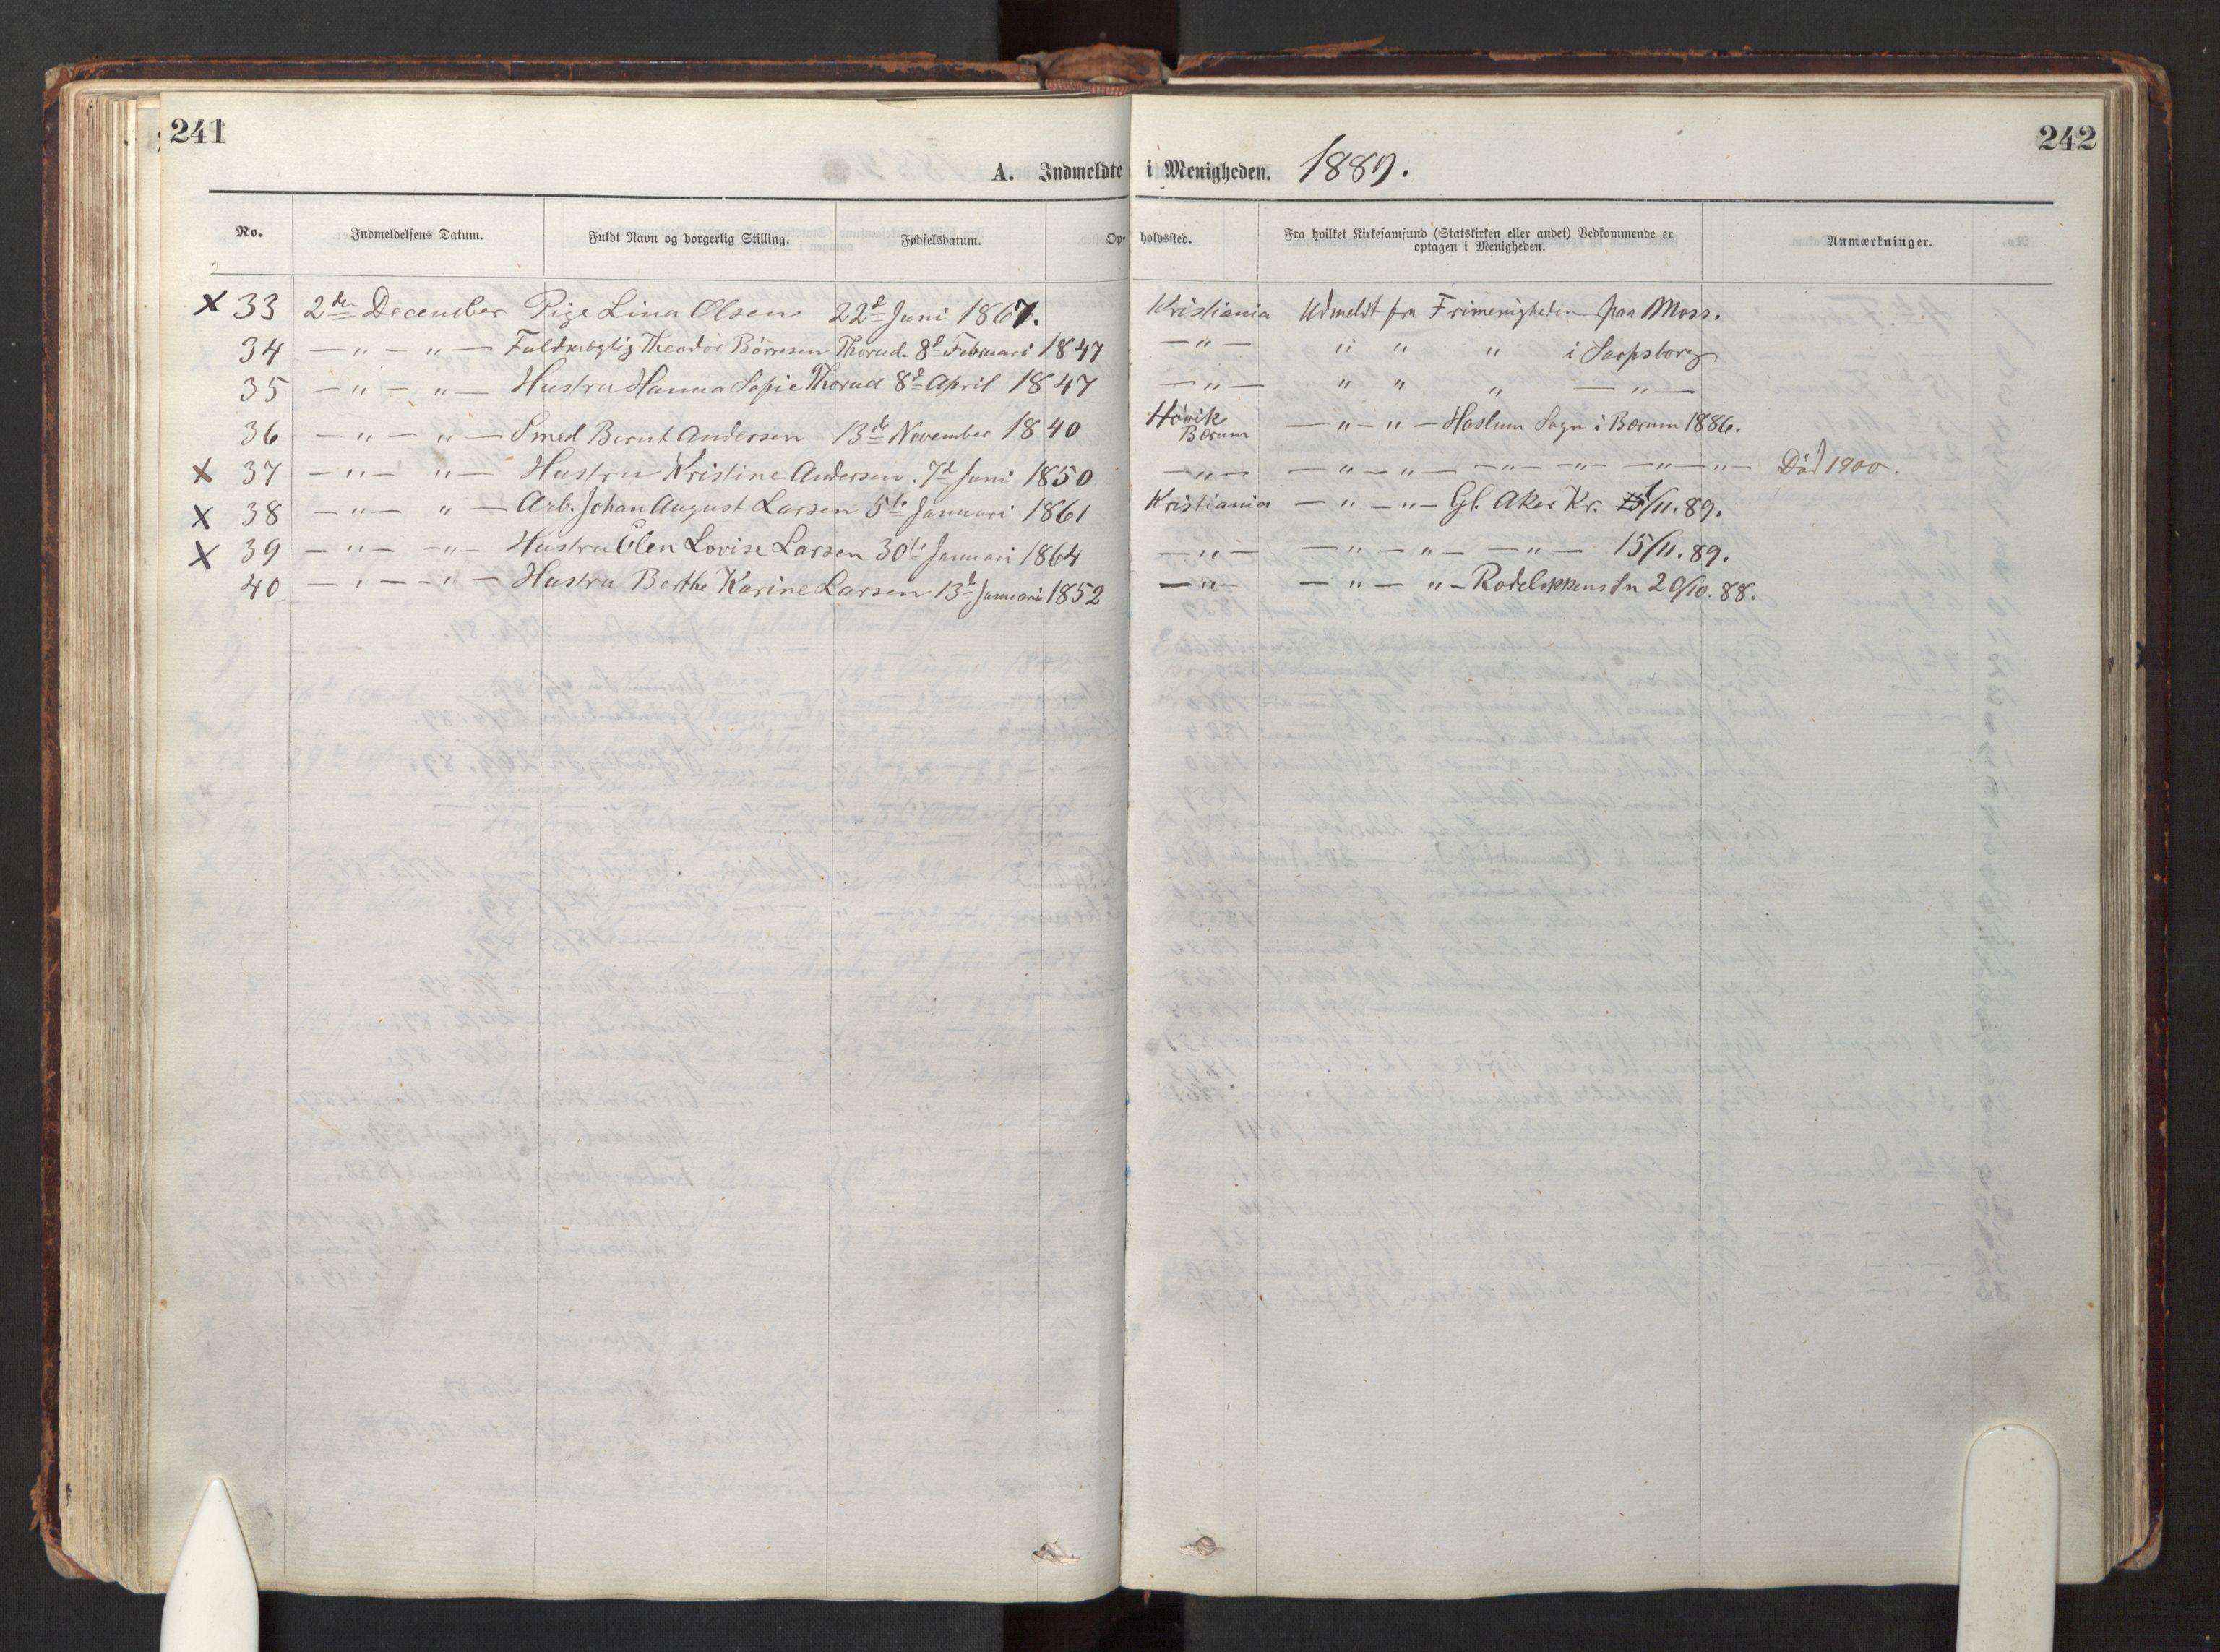 241
242
A. Indmeldte i Menigheden. 1889.
No. Indmeldelsens Datum. Fuldt Navn og borgerlig Stilling. Fødselsdatum. Op- holdssted. Fra hvilket Kirkesamfund (Statskirken eller andet) Vedkommende er optagen i Menigheden. Anmærkninger.
X 33 2den December Pige Lina Olsen 22d Juni 1867. Kristiania Udmeldt fra Frimenigheden paa Moss.
34 — " — " — Fuldmægtig Theodor Børresen Thorud. 8d Februari 1847 — " — " " " i Sarpsborg
35 — " — " — Hustru Hanna Sofie Thorud 8d April 1847 — " — " " " — " —
36 — " — " — Smed Bernt Andersen 13de November 1840 Høvik Bærum — " — " — Haslum Sogn i Bærum 1886.
X 37 — " — " — Hustru Kristine Andersen. 7d Juni 1850 — " — — " — " — — " — — " — — " — " — Død 1900.
X 38 — " — " — Arb. Johan August Larsen 5te Januari 1861 Kristiania — " — " — Gl. Aker Kr. /11. 89.
X 39 — " — — " — Hustru Elen Lovise Larsen 30te Januari 1864 — " — — " — " — — " — 15/11. 89.
40 — " — " — Hustru Berthe Karine Larsen 13d Januari 1852 — " — — " — " — Rodeløkkens Sn 20/10. 88.